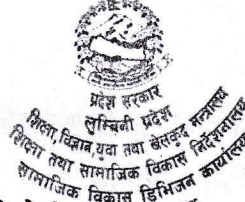 प्रदेश सरकार
लुम्बिनी प्रदेश
शिक्षा, विज्ञान, युवा तथा खेलकुद मन्त्रालय
शिक्षा तथा सामाजिक विकास निर्देशनालय
सामाजिक विकास डिभिजन कार्यालय